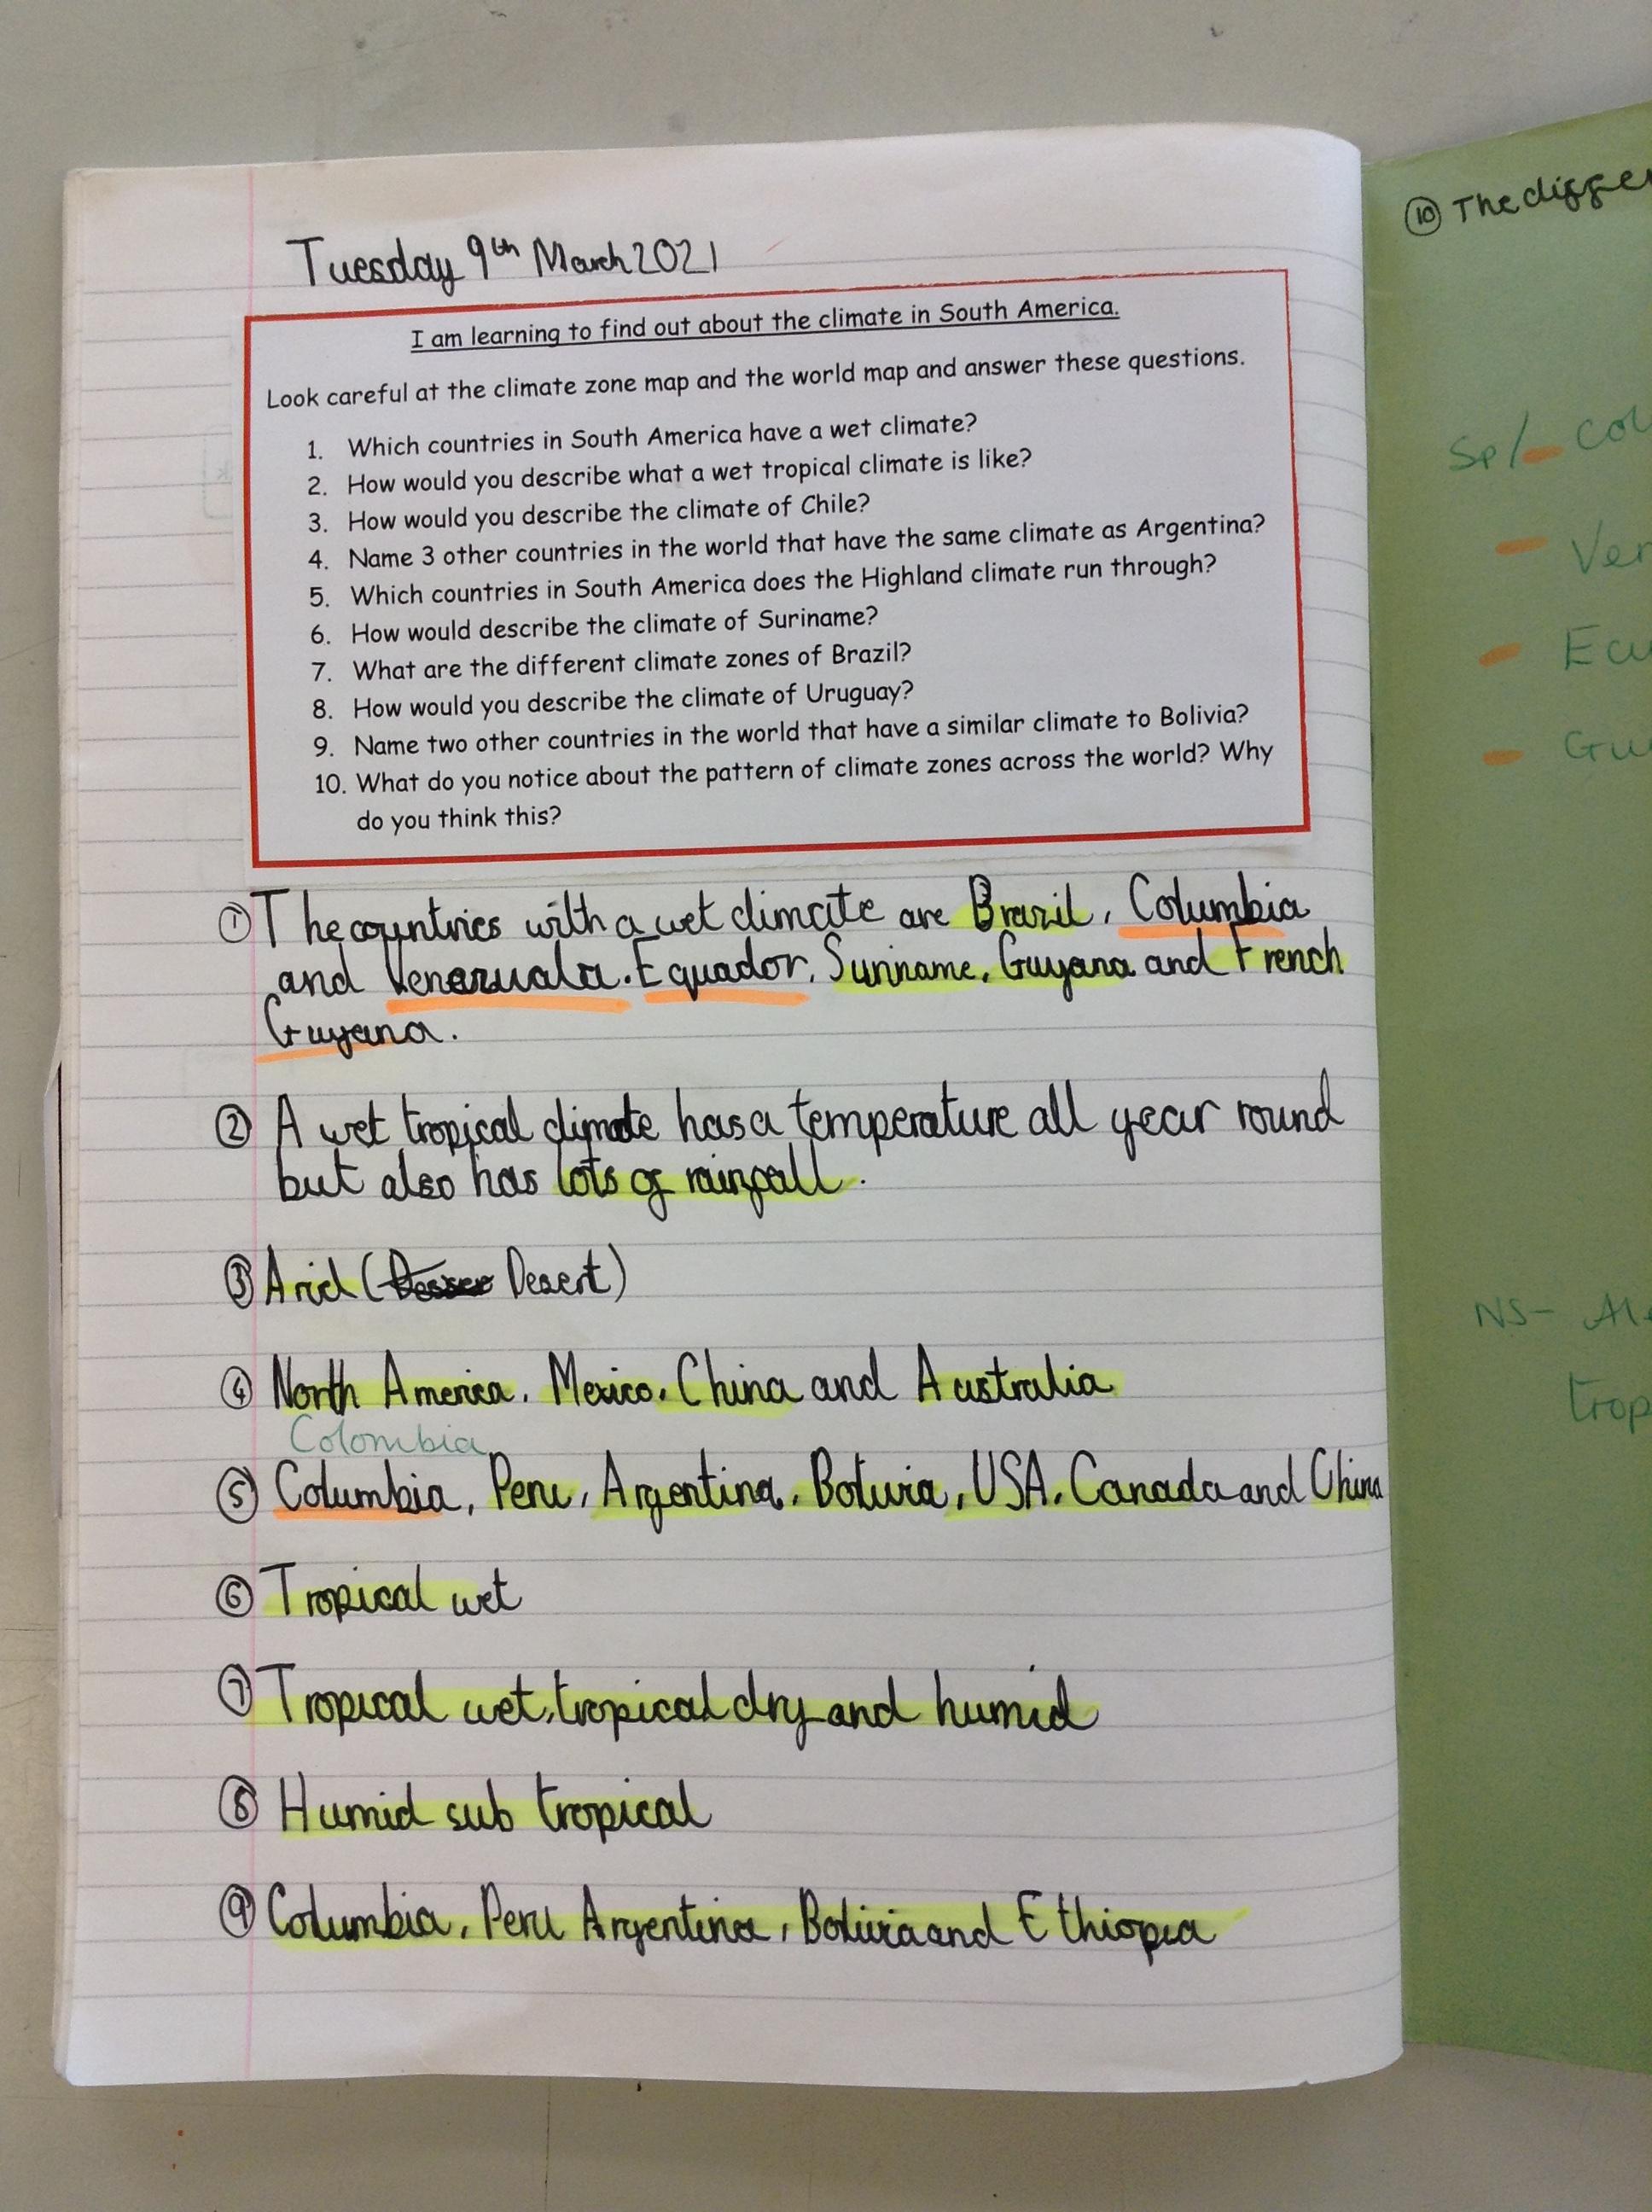 Tuesday 9th March 2021
I am learning to find out about the climate in South America.
Look careful at the climate zone map and the world map and answer these questions.
1. Which countries in South America have a wet climate?
2. How would you describe what a wet tropical climate is like?
3. How would you describe the climate of Chile?
4. Name 3 other countries in the world that have the same climate as Argentina?
5. Which countries in South America does the Highland climate run through?
6. How would describe the climate of Suriname?
7. What are the different climate zones of Brazil?
8. How would you describe the climate of Uruguay?
9. Name two other countries in the world that have a similar climate to Bolivia?
10. What do you notice about the pattern of climate zones across the world? Why
do you think this?
① The countries with a wet climate are Brazil, Columbia
and Venezuala. Equador, Suriname, Guyana and French
Guyana.
② A wet tropical climate has a temperature all year round
but also has lots of rainfall.
③ Arid ( Desert)
④ North America, Mexico, China and Australia
Colombia
⑤ Columbia, Peru, Argentina, Bolivia, USA, Canada and China
⑥ Tropical wet
⑦ Tropical wet, tropical dry and humid
⑧ Humid sub tropical
⑨ Columbia, Peru Argentina, Bolivia and Ethiopia
⑩ The differ
Sp/- Col
- Ven
- Ecu
- Gu
NS-
trop